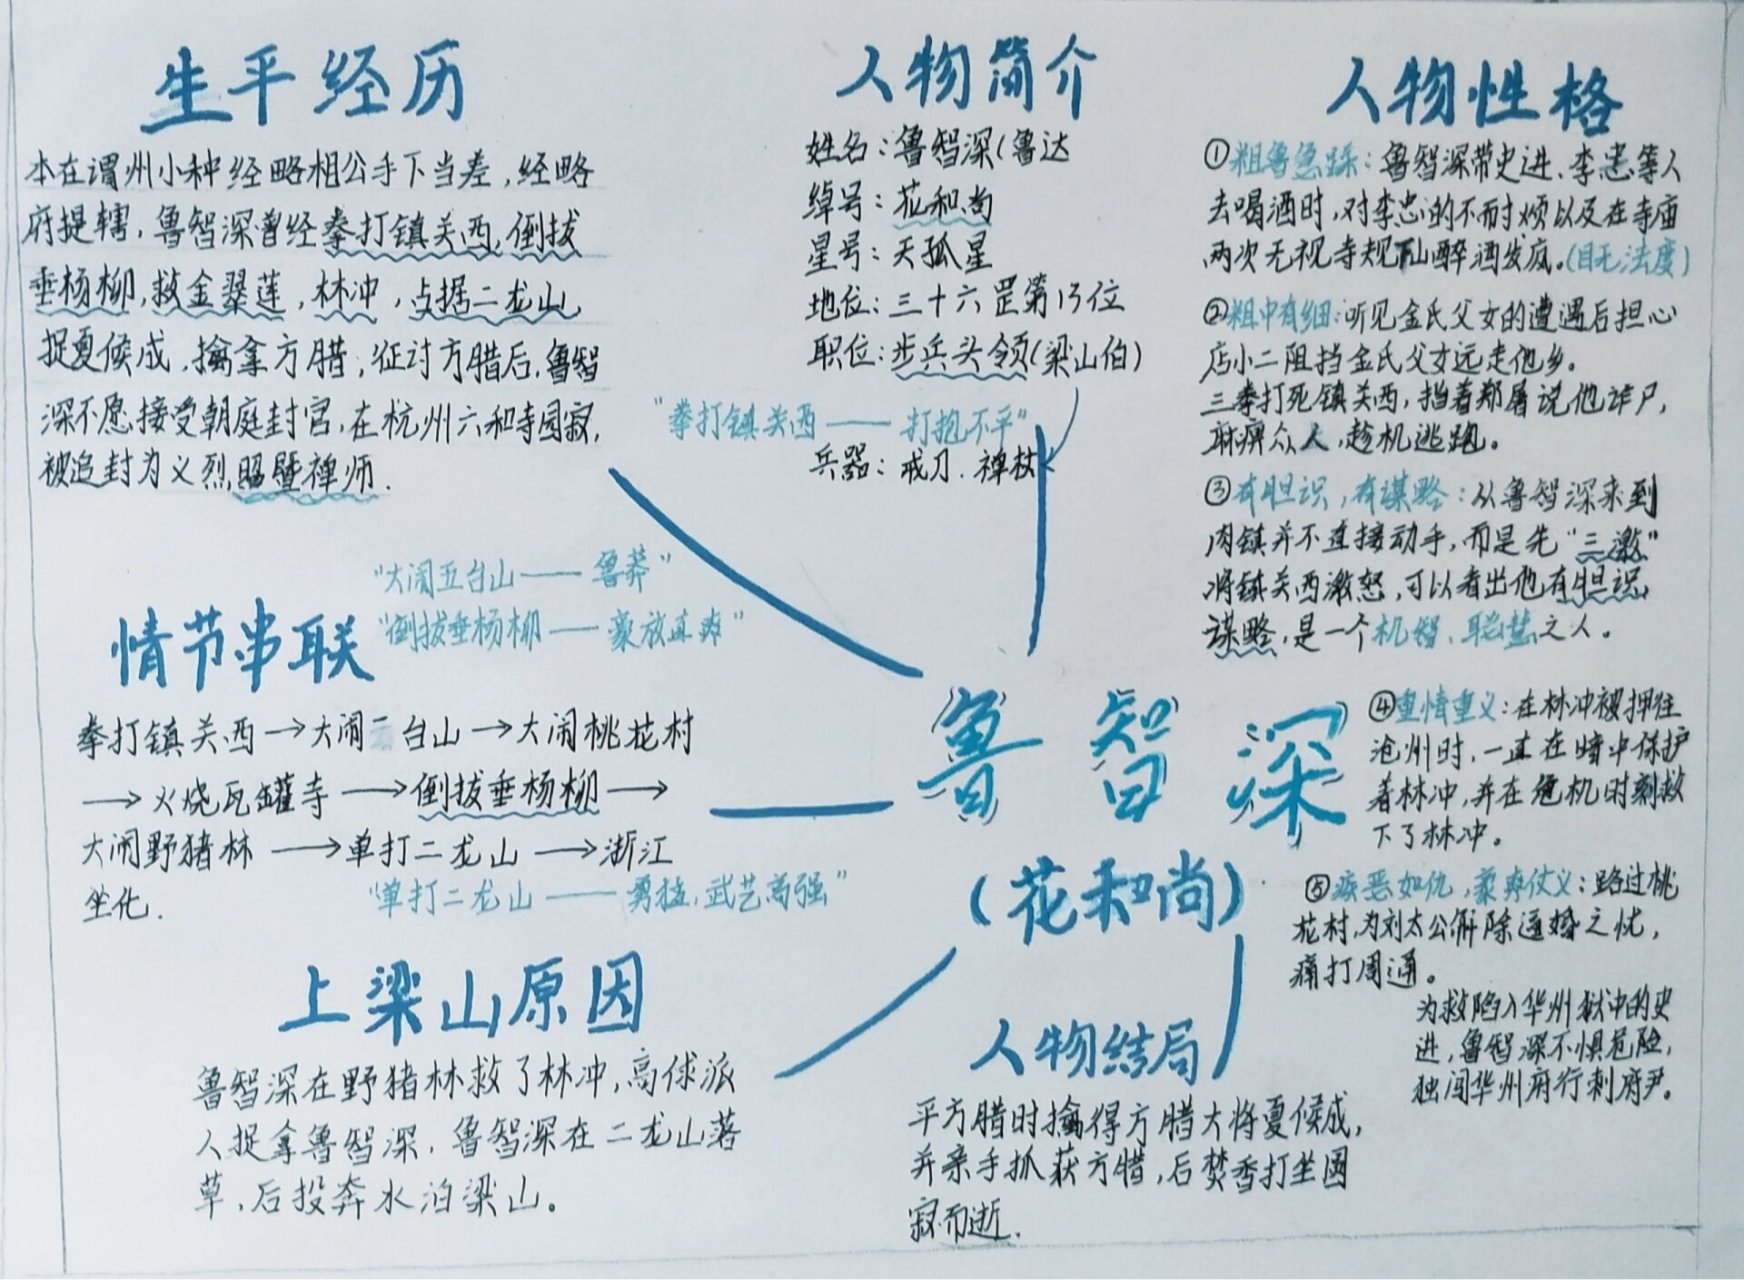 生平经历
本在谓州小种经略相公手下当差,经略
府提辖,鲁智深曾经拳打镇关西,倒拔
垂杨柳,救金翠莲,林冲,占据二龙山,
捉夏侯成,擒拿方腊,征讨方腊后,鲁智
深不愿接受朝庭封官,在杭州六和寺圆寂,
被追封为义烈照暨禅师.
人物简介
姓名:鲁智深(鲁达
绰号:花和尚
星号:天孤星
地位:三十六罡第13位
职位:步兵头领(梁山伯)
"拳打镇关西——打抱不平"
兵器:戒刀.禅杖
人物性格
①粗鲁急躁:鲁智深带史进、李忠等人
去喝酒时,对李忠的不耐烦以及在寺庙
两次无视寺规下山醉酒发疯。(目无法度)
②粗中有细:听见金氏父女的遭遇后担心
店小二阻挡金氏父女远走他乡。
三拳打死镇关西,指着郑屠说他诈尸,
麻痹众人,趁机逃跑。
③有胆识,有谋略:从鲁智深来到
肉镇并不直接动手,而是先"三激"
将镇关西激怒,可以看出他有胆识,
谋略,是一个机智、聪慧之人。
④重情重义:在林冲被押往
沧州时,一直在暗中保护
着林冲,并在危机时刻救
下了林冲。
⑤疾恶如仇,豪爽仗义:路过桃
花村,为刘太公解除逼婚之忧,
痛打周通。
为救陷入华州狱冲的史
进,鲁智深不惧危险,
独闯华州府行刺府尹。
"大闹五台山——鲁莽"
"倒拔垂杨柳——豪放直爽"
情节串联
拳打镇关西→大闹 台山→大闹桃花村
→火烧瓦罐寺→倒拔垂杨柳→
大闹野猪林→单打二龙山→浙江
坐化.
"单打二龙山——勇猛,武艺高强"
鲁智深
(花和尚)
上梁山原因
鲁智深在野猪林救了林冲,高俅派
人捉拿鲁智深,鲁智深在二龙山落
草,后投奔水泊梁山。
人物结局
平方腊时擒得方腊大将夏侯成,
并亲手抓获方腊,后焚香打坐圆
寂而逝.